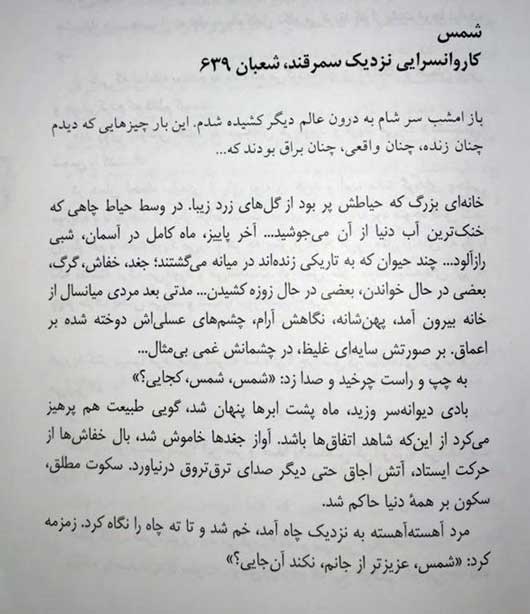 شمس
کاروانسرایی نزدیک سمرقند، شعبان ۶۳۹
باز امشب سر شام به درون عالم دیگر کشیده شدم. این بار چیزهایی که دیدم
چنان زنده، چنان واقعی، چنان براق بودند که...
خانه‌ای بزرگ که حیاطش پر بود از گل‌های زرد زیبا. در وسط حیاط چاهی که
خنک‌ترین آب دنیا از آن می‌جوشید... آخر پاییز، ماه کامل در آسمان، شبی
رازآلود... چند حیوان که به تاریکی زنده‌اند در میانه می‌گشتند؛ جغد، خفاش، گرگ،
بعضی در حال خواندن، بعضی در حال زوزه کشیدن... مدتی بعد مردی میانسال از
خانه بیرون آمد، پهن‌شانه، نگاهش آرام، چشم‌های عسلی‌اش دوخته شده بر
اعماق. بر صورتش سایه‌ای غلیظ، در چشمانش غمی بی‌مثال...
به چپ و راست چرخید و صدا زد: «شمس، شمس، کجایی؟»
بادی دیوانه‌سر وزید، ماه پشت ابرها پنهان شد، گویی طبیعت هم پرهیز
می‌کرد از این‌که شاهد اتفاق‌ها باشد. آواز جغدها خاموش شد، بال خفاش‌ها از
حرکت ایستاد، آتش اجاق حتی دیگر صدای ترق‌تروق درنیاورد. سکوت مطلق،
سکون بر همهٔ دنیا حاکم شد.
مرد آهسته‌آهسته به نزدیک چاه آمد، خم شد و تا ته چاه را نگاه کرد. زمزمه
کرد: «شمس، عزیزتر از جانم، نکند آن‌جایی؟»